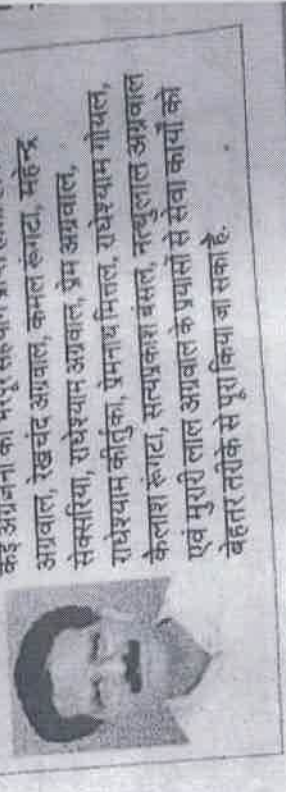 कई अग्रजनों का भरपूर सहयोग
अग्रवाल, रेखचंद अग्रवाल, कमल रूंगटा, महेन्द्र
सेक्सरिया, राधेश्याम अग्रवाल, प्रेम अग्रवाल,
राधेश्याम कीर्तुका, प्रेमनाथ मित्तल, राधेश्याम गोयल,
कैलाश रूंगटा, सत्यप्रकाश बंसल, नत्थुलाल अग्रवाल
एवं मुरारी लाल अग्रवाल के प्रयासों से सेवा कार्यों को
बेहतर तरीके से पूरा किया जा सका है.